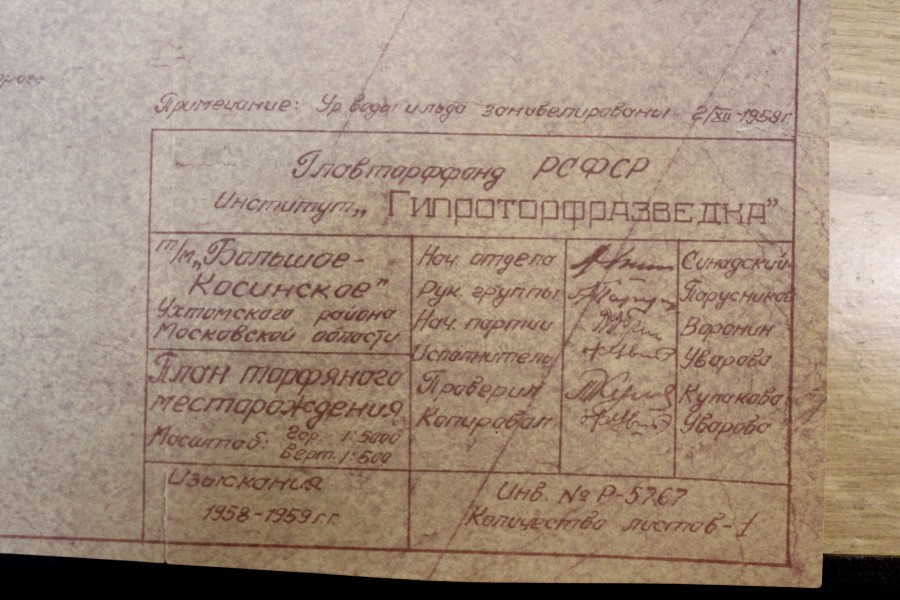 Примечание: Ур. воды и льда занивелированы 2/XII-1958г.
Главторффонд РСФСР
Институт „Гипроторфразведка"
т/м „Большое-
Косинское"
Ухтомского района
Московской области
План торфяного
месторождения
Масштаб: Гор. 1:5000
Верт. 1:500
Изыскания
1958-1959 г.г.
Нач. отдела Синадский
Рук. группы Парусников
Нач. партии Воронин
Исполнитель Уварова
Проверил Кулакова
Копировал Уварова
Инв. № Р-5767
Количество листов-1